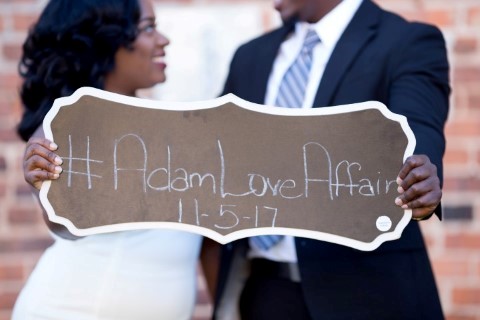 #AdamLoveAffair
11-5-17